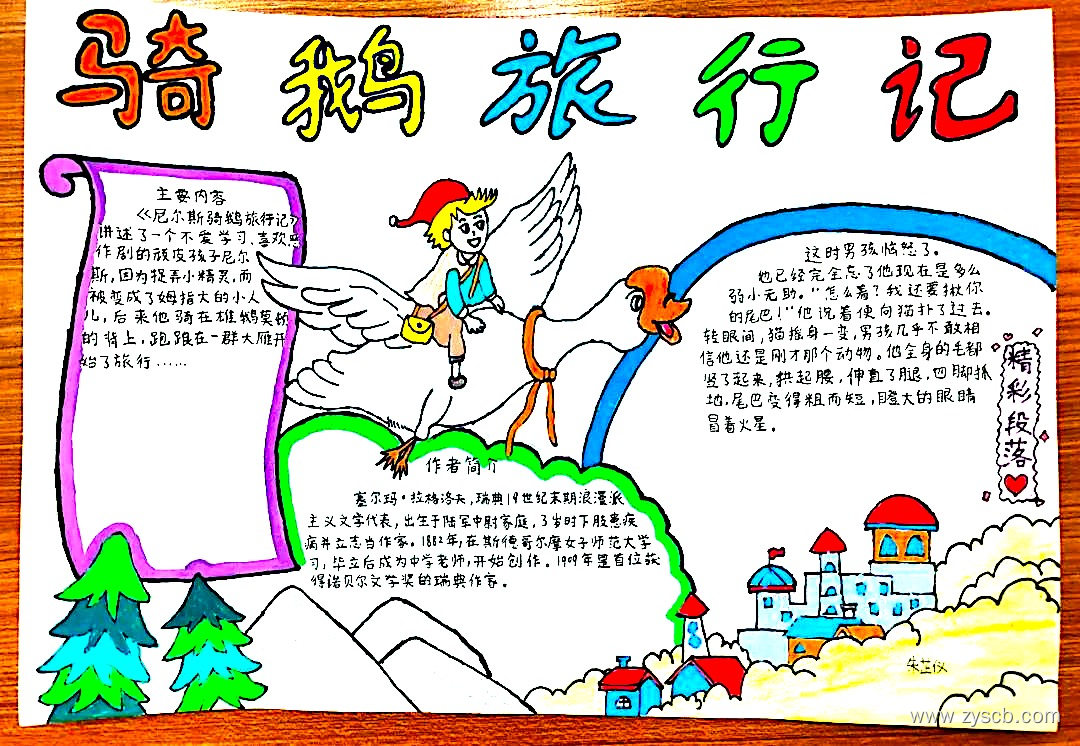 骑鹅旅行记
主要内容
《尼尔斯骑鹅旅行记》
讲述了一个不爱学习、喜欢恶
作剧的顽皮孩子尼尔
斯，因为捉弄小精灵，而
被变成了姆指大的小人
儿，后来他骑在雄鹅莫顿
的背上，跑跟在一群大雁开
始了旅行……
这时男孩恼怒了。
他已经完全忘了他现在是多么
弱小无助。“怎么着？我还要揪你
的尾巴！”他说着便向猫扑了过去。
转眼间，猫摇身一变，男孩几乎不敢相
信他还是刚才那个动物。他全身的毛都
竖了起来，拱起腰，伸直了腿，四脚抓
地，尾巴变得粗而短，瞪大的眼睛
冒着火星。
精彩段落
作者简介
塞尔玛·拉格洛夫，瑞典19世纪末期浪漫派
主义文学代表，出生于陆军中尉家庭，3岁时下肢患疾
病并立志当作家。1882年，在斯德哥尔摩女子师范大学
习，毕立后成为中学老师，开始创作。1909年是首位获
得诺贝尔文学奖的瑞典作家。
朱芷仪
www.zyscb.com